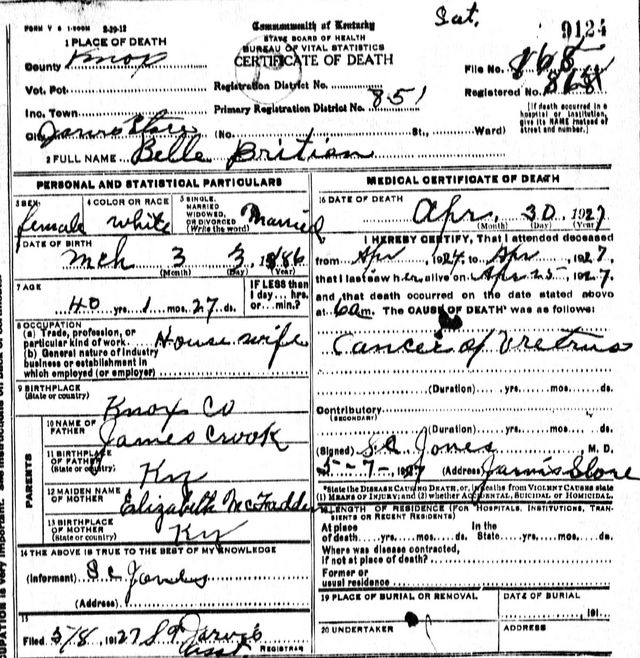 FORM V S 1-500M 2-29-12
Commonwealth of Kentucky
Sat.
STATE BOARD OF HEALTH
BUREAU OF VITAL STATISTICS
CERTIFICATE OF DEATH
9124
1 PLACE OF DEATH
County Knox
File No. 868
Vot. Pct.
Registration District No.
Registered No. 868
Inc. Town
Primary Registration District No. 851
[If death occurred in a hospital or institution, give its NAME instead of street and number.]
City Jarvis Store (No. St., Ward)
2 FULL NAME Belle Britian
PERSONAL AND STATISTICAL PARTICULARS
3 SEX female
4 COLOR OR RACE white
5 SINGLE, MARRIED WIDOWED, OR DIVORCED (Write the word) Married
6 DATE OF BIRTH
Mch 3 3, 1886
(Month) (Day) (Year)
7 AGE
40 yrs. 1 mos. 27 ds.
IF LESS than 1 day... hrs. or... min.?
8 OCCUPATION
(a) Trade, profession, or particular kind of work House wife
(b) General nature of industry business or establishment in which employed (or employer)
9 BIRTHPLACE (State or country)
Knox Co
PARENTS
10 NAME OF FATHER James Crook
11 BIRTHPLACE OF FATHER (State or country) Ky
12 MAIDEN NAME OF MOTHER Elizabeth McFadden
13 BIRTHPLACE OF MOTHER (State or country) Ky
14 THE ABOVE IS TRUE TO THE BEST OF MY KNOWLEDGE
(Informant) S.C. Jones
(Address)
15
Filed 5/8, 1927 S F Jarvis
Asst. REGISTRAR
MEDICAL CERTIFICATE OF DEATH
16 DATE OF DEATH
Apr. 30, 1927
(Month) (Day) (Year)
I HEREBY CERTIFY, That I attended deceased
from Apr, 1927, to Apr, 1927,
that I last saw her alive on Apr 25, 1927,
and that death occurred on the date stated above
at 6 am. The CAUSE OF DEATH* was as follows:
Cancer of Uretrus
(Duration) yrs. mos. ds.
Contributory (SECONDARY)
(Duration) yrs. mos. ds.
(Signed) S.C. Jones M. D.
5-7-1927 (Address) Jarvis Store
*State the DISEASE CAUSING DEATH, or, in deaths from VIOLENT CAUSES state
(1) MEANS OF INJURY; and (2) whether ACCIDENTAL, SUICIDAL OR HOMICIDAL.
18 LENGTH OF RESIDENCE (FOR HOSPITALS, INSTITUTIONS, TRANSIENTS OR RECENT RESIDENTS)
At place of death yrs. mos. ds. In the State yrs. mos. ds.
Where was disease contracted, if not at place of death?
Former or usual residence
19 PLACE OF BURIAL OR REMOVAL
DATE OF BURIAL
, 191
20 UNDERTAKER
ADDRESS